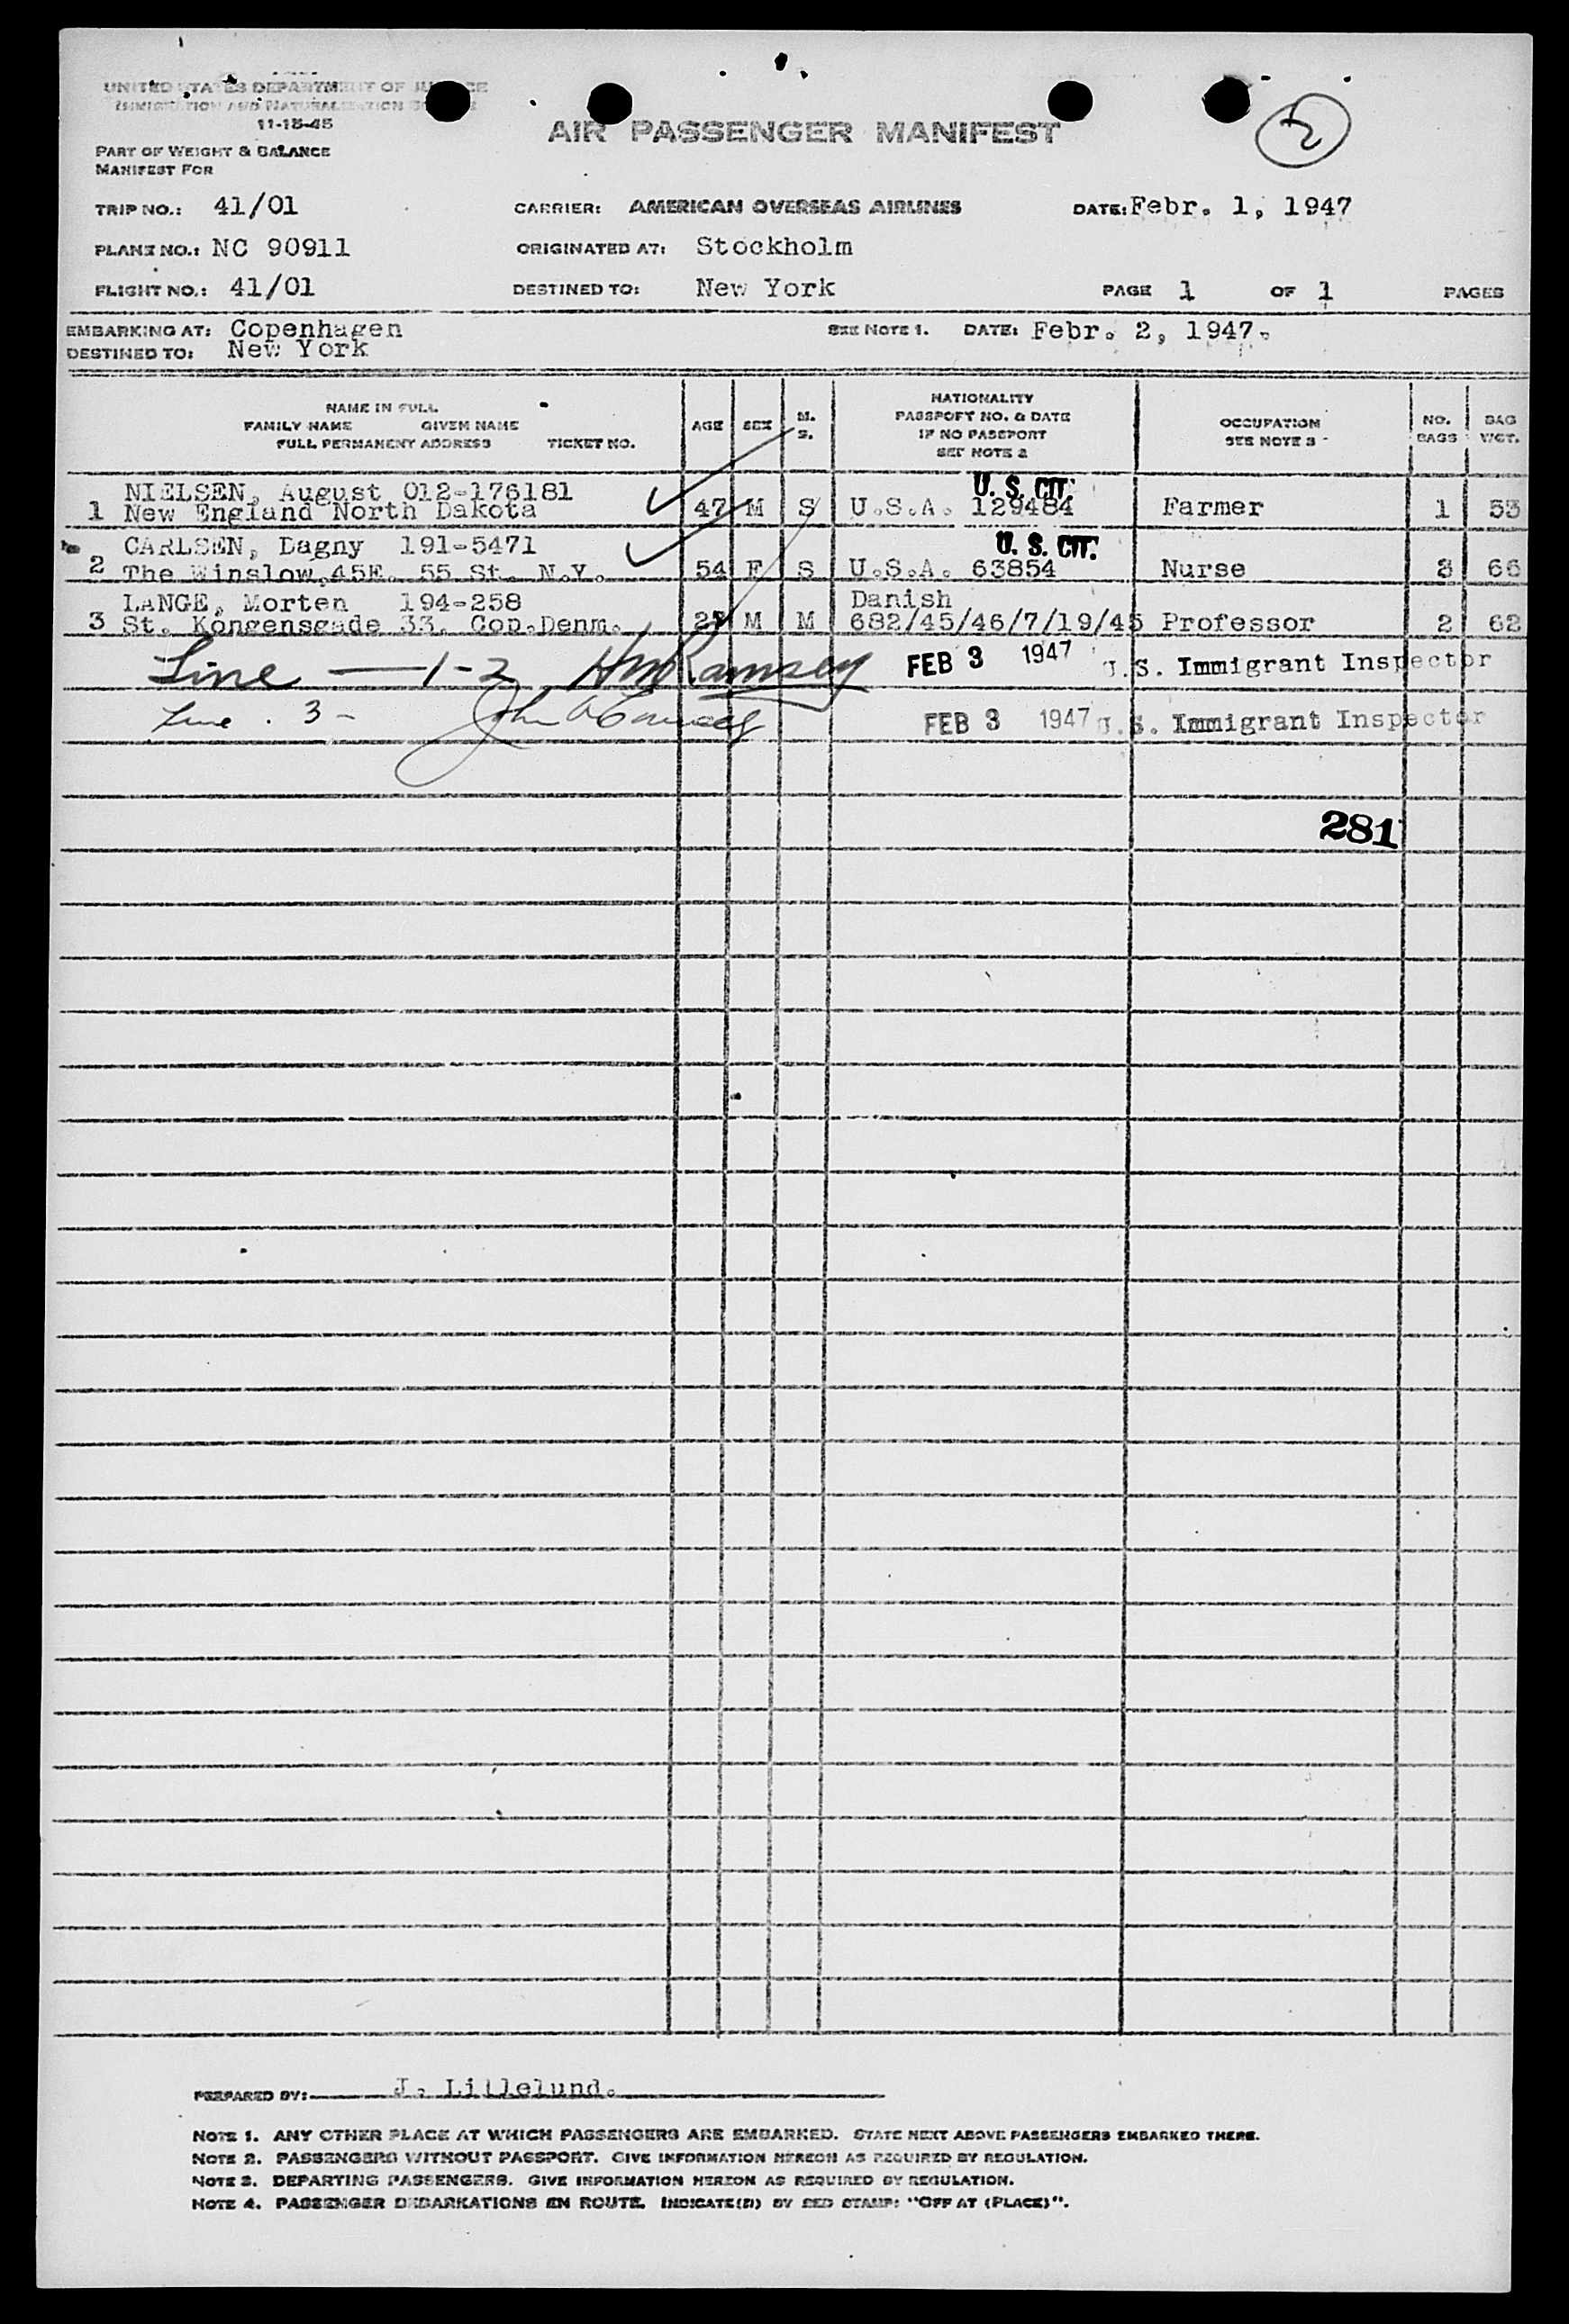 UNITED STATES DEPARTMENT OF JUSTICE
IMMIGRATION AND NATURALIZATION
11-15-45
AIR PASSENGER MANIFEST
2
PART OF WEIGHT & BALANCE
MANIFEST FOR
TRIP NO.: 41/01 CARRIER: AMERICAN OVERSEAS AIRLINES DATE: Febr. 1, 1947
PLANE NO.: NC 90911 ORIGINATED AT: Stockholm
FLIGHT NO.: 41/01 DESTINED TO: New York PAGE 1 OF 1 PAGES
EMBARKING AT: Copenhagen SEE NOTE 1. DATE: Febr. 2, 1947.
DESTINED TO: New York
NAME IN FULL
FAMILY NAME GIVEN NAME
FULL PERMANENT ADDRESS TICKET NO.
AGE SEX M. S.
NATIONALITY
PASSPORT NO. & DATE
IF NO PASSPORT
SEE NOTE 2
OCCUPATION
SEE NOTE 3
NO. BAGS
BAG WGT.
NIELSEN, August 012-176181 U. S. CIT.
1 New England North Dakota 47 M S U.S.A. 129484 Farmer 1 53
CARLSEN, Dagny 191-5471 U. S. CIT.
2 The Winslow, 45E. 55 St. N.Y. 54 F S U.S.A. 63854 Nurse 3 66
LANGE, Morten 194-258 Danish
3 St. Kongensgade 33. Cop.Denm. M M 682/45/46/7/19/45 Professor 2 62
Line — 1-2 HM Ramsey FEB 3 1947 U.S. Immigrant Inspector
Line . 3 - John A FEB 3 1947 U.S. Immigrant Inspector
281
PREPARED BY: J. Lillelund.
NOTE 1. ANY OTHER PLACE AT WHICH PASSENGERS ARE EMBARKED. STATE NEXT ABOVE PASSENGERS EMBARKED THERE.
NOTE 2. PASSENGERS WITHOUT PASSPORT. GIVE INFORMATION HEREON AS REQUIRED BY REGULATION.
NOTE 3. DEPARTING PASSENGERS. GIVE INFORMATION HEREON AS REQUIRED BY REGULATION.
NOTE 4. PASSENGER DEBARKATIONS EN ROUTE. INDICATE(D) BY RED STAMP: "OFF AT (PLACE)".